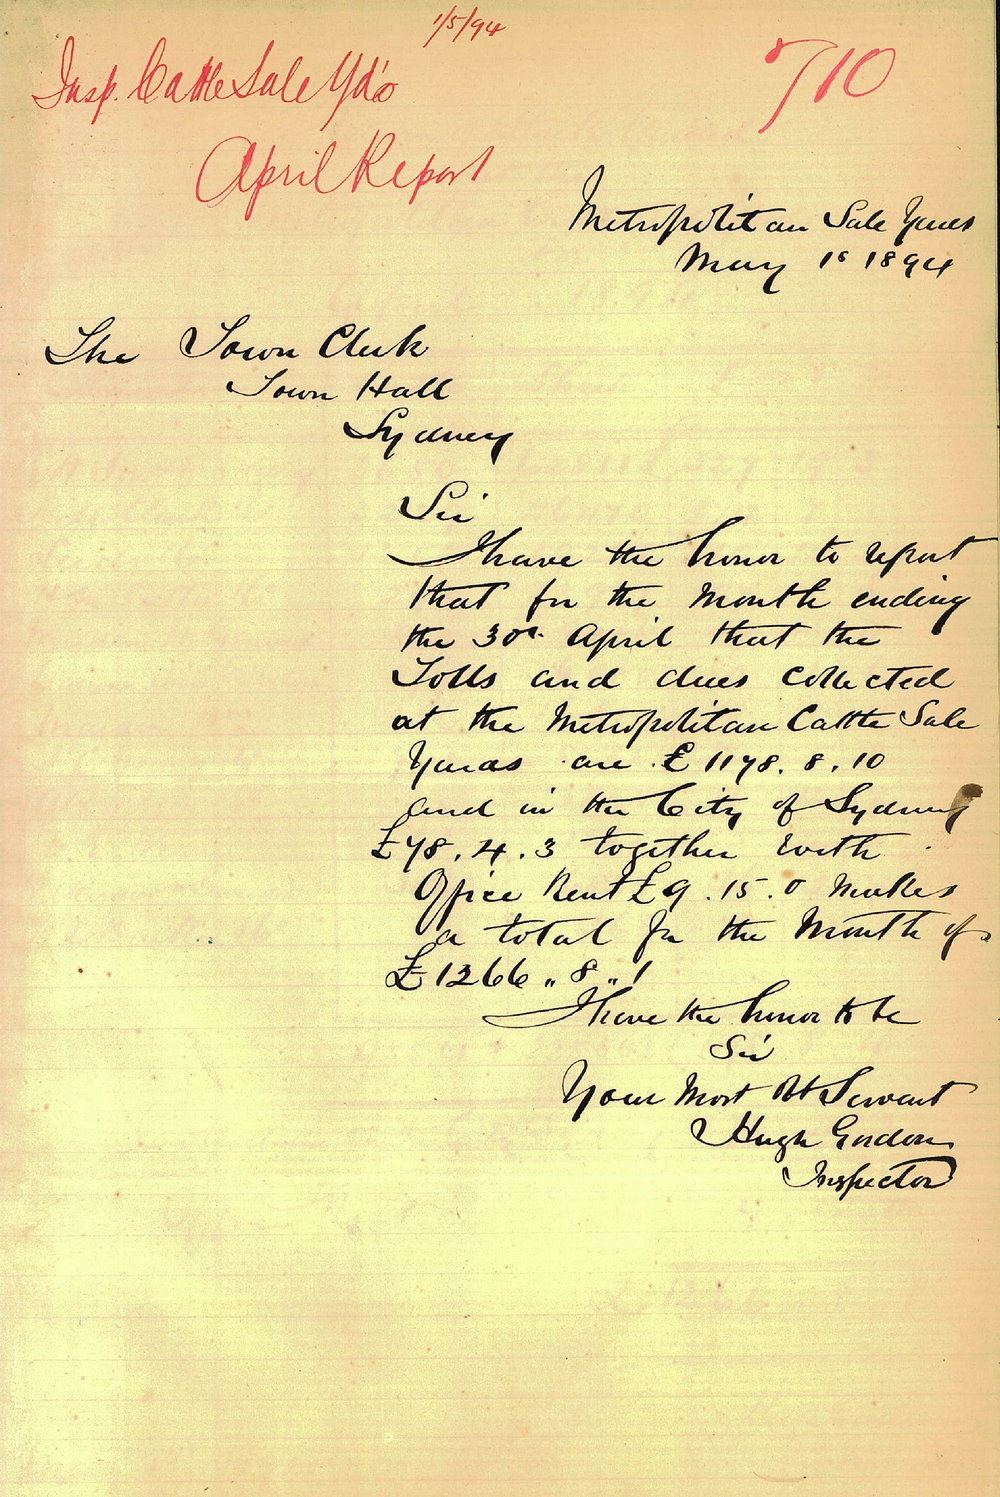 1/5/94
Insp. Cattle Sale Yds
710
April Report
Metropolitan Sale Yards
May 1s 1894
The Town Clerk
Town Hall
Sydney
Sir
I have the honor to report
that for the Month ending
the 30th April that the
Tolls and dues collected
at the Metropolitan Cattle Sale
Yards are £ 1178. 8. 10
and in the City of Sydney
£78. 4. 3 together with
Office Rent £9. 15. 0 makes
a total for the Month of
£1266 " 8 " 1
I have the honor to be
Sir
Your Most Obt Servant
Hugh Gordon
Inspector